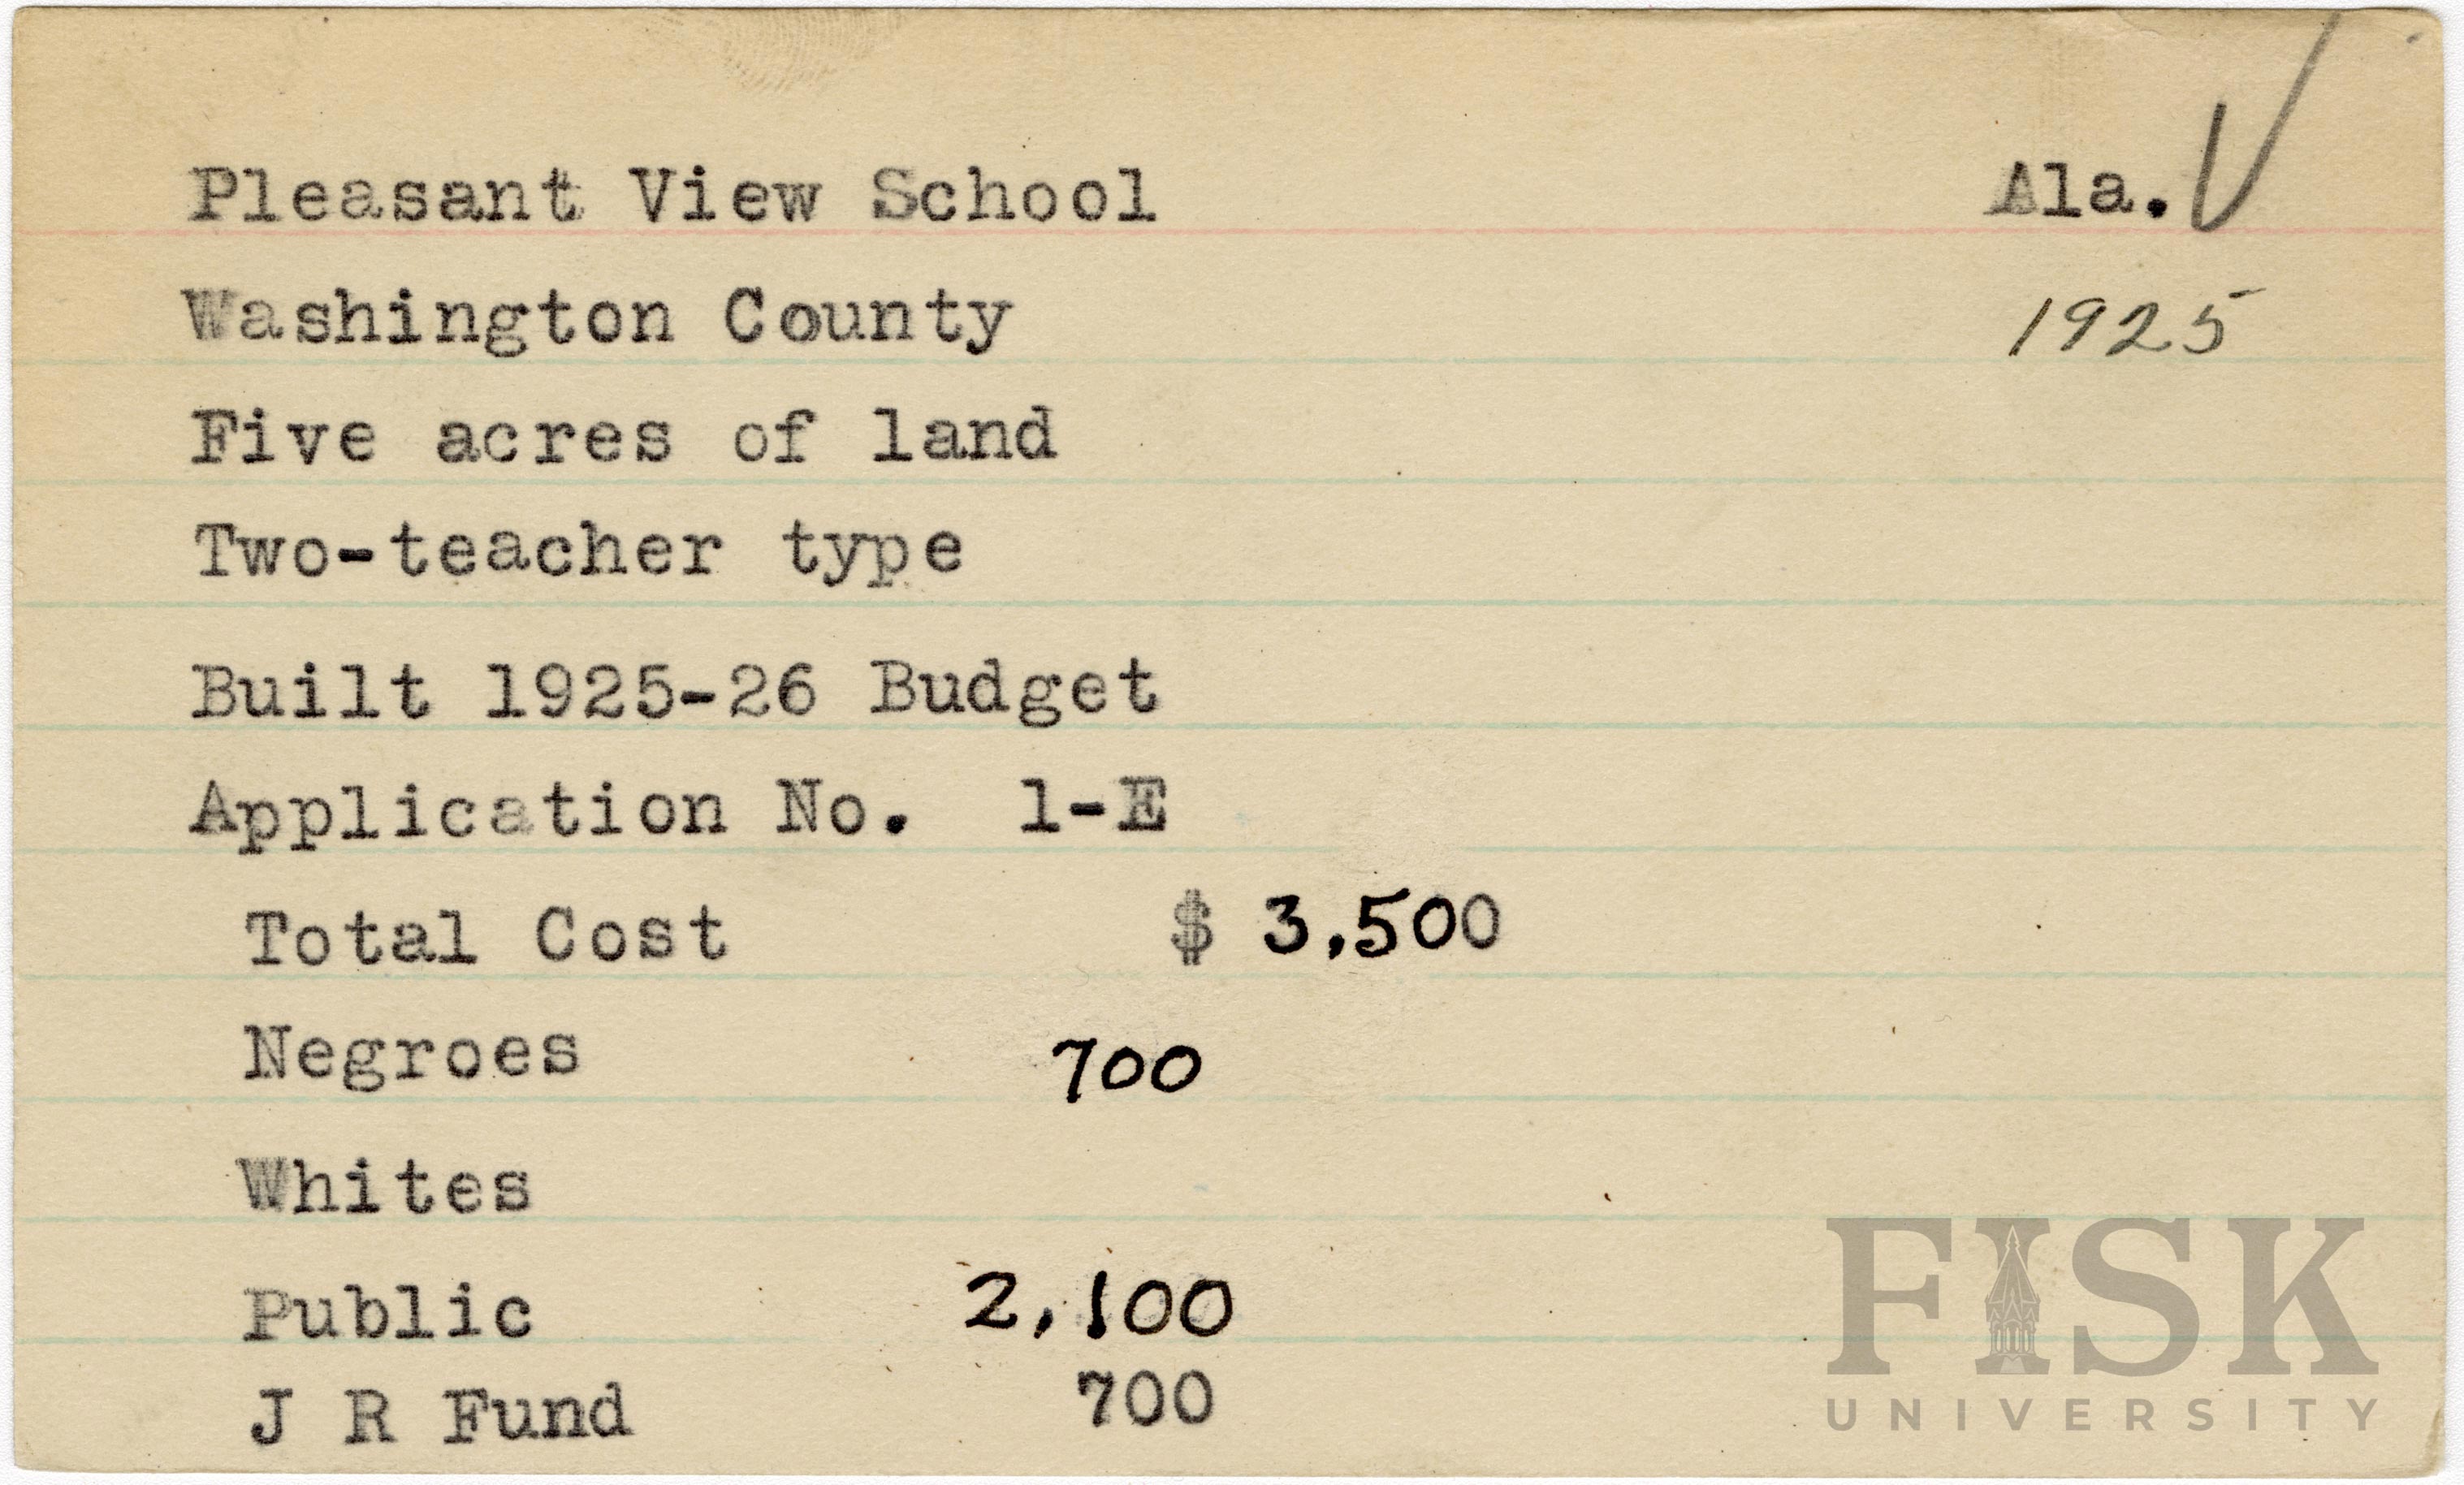 Pleasant View School Ala. V
Washington County 1925
Five acres of land
Two-teacher type
Built 1925-26 Budget
Application No. 1-E
Total Cost $ 3,500
Negroes 700
Whites
Public 2,100
J R Fund 700
FISK
UNIVERSITY